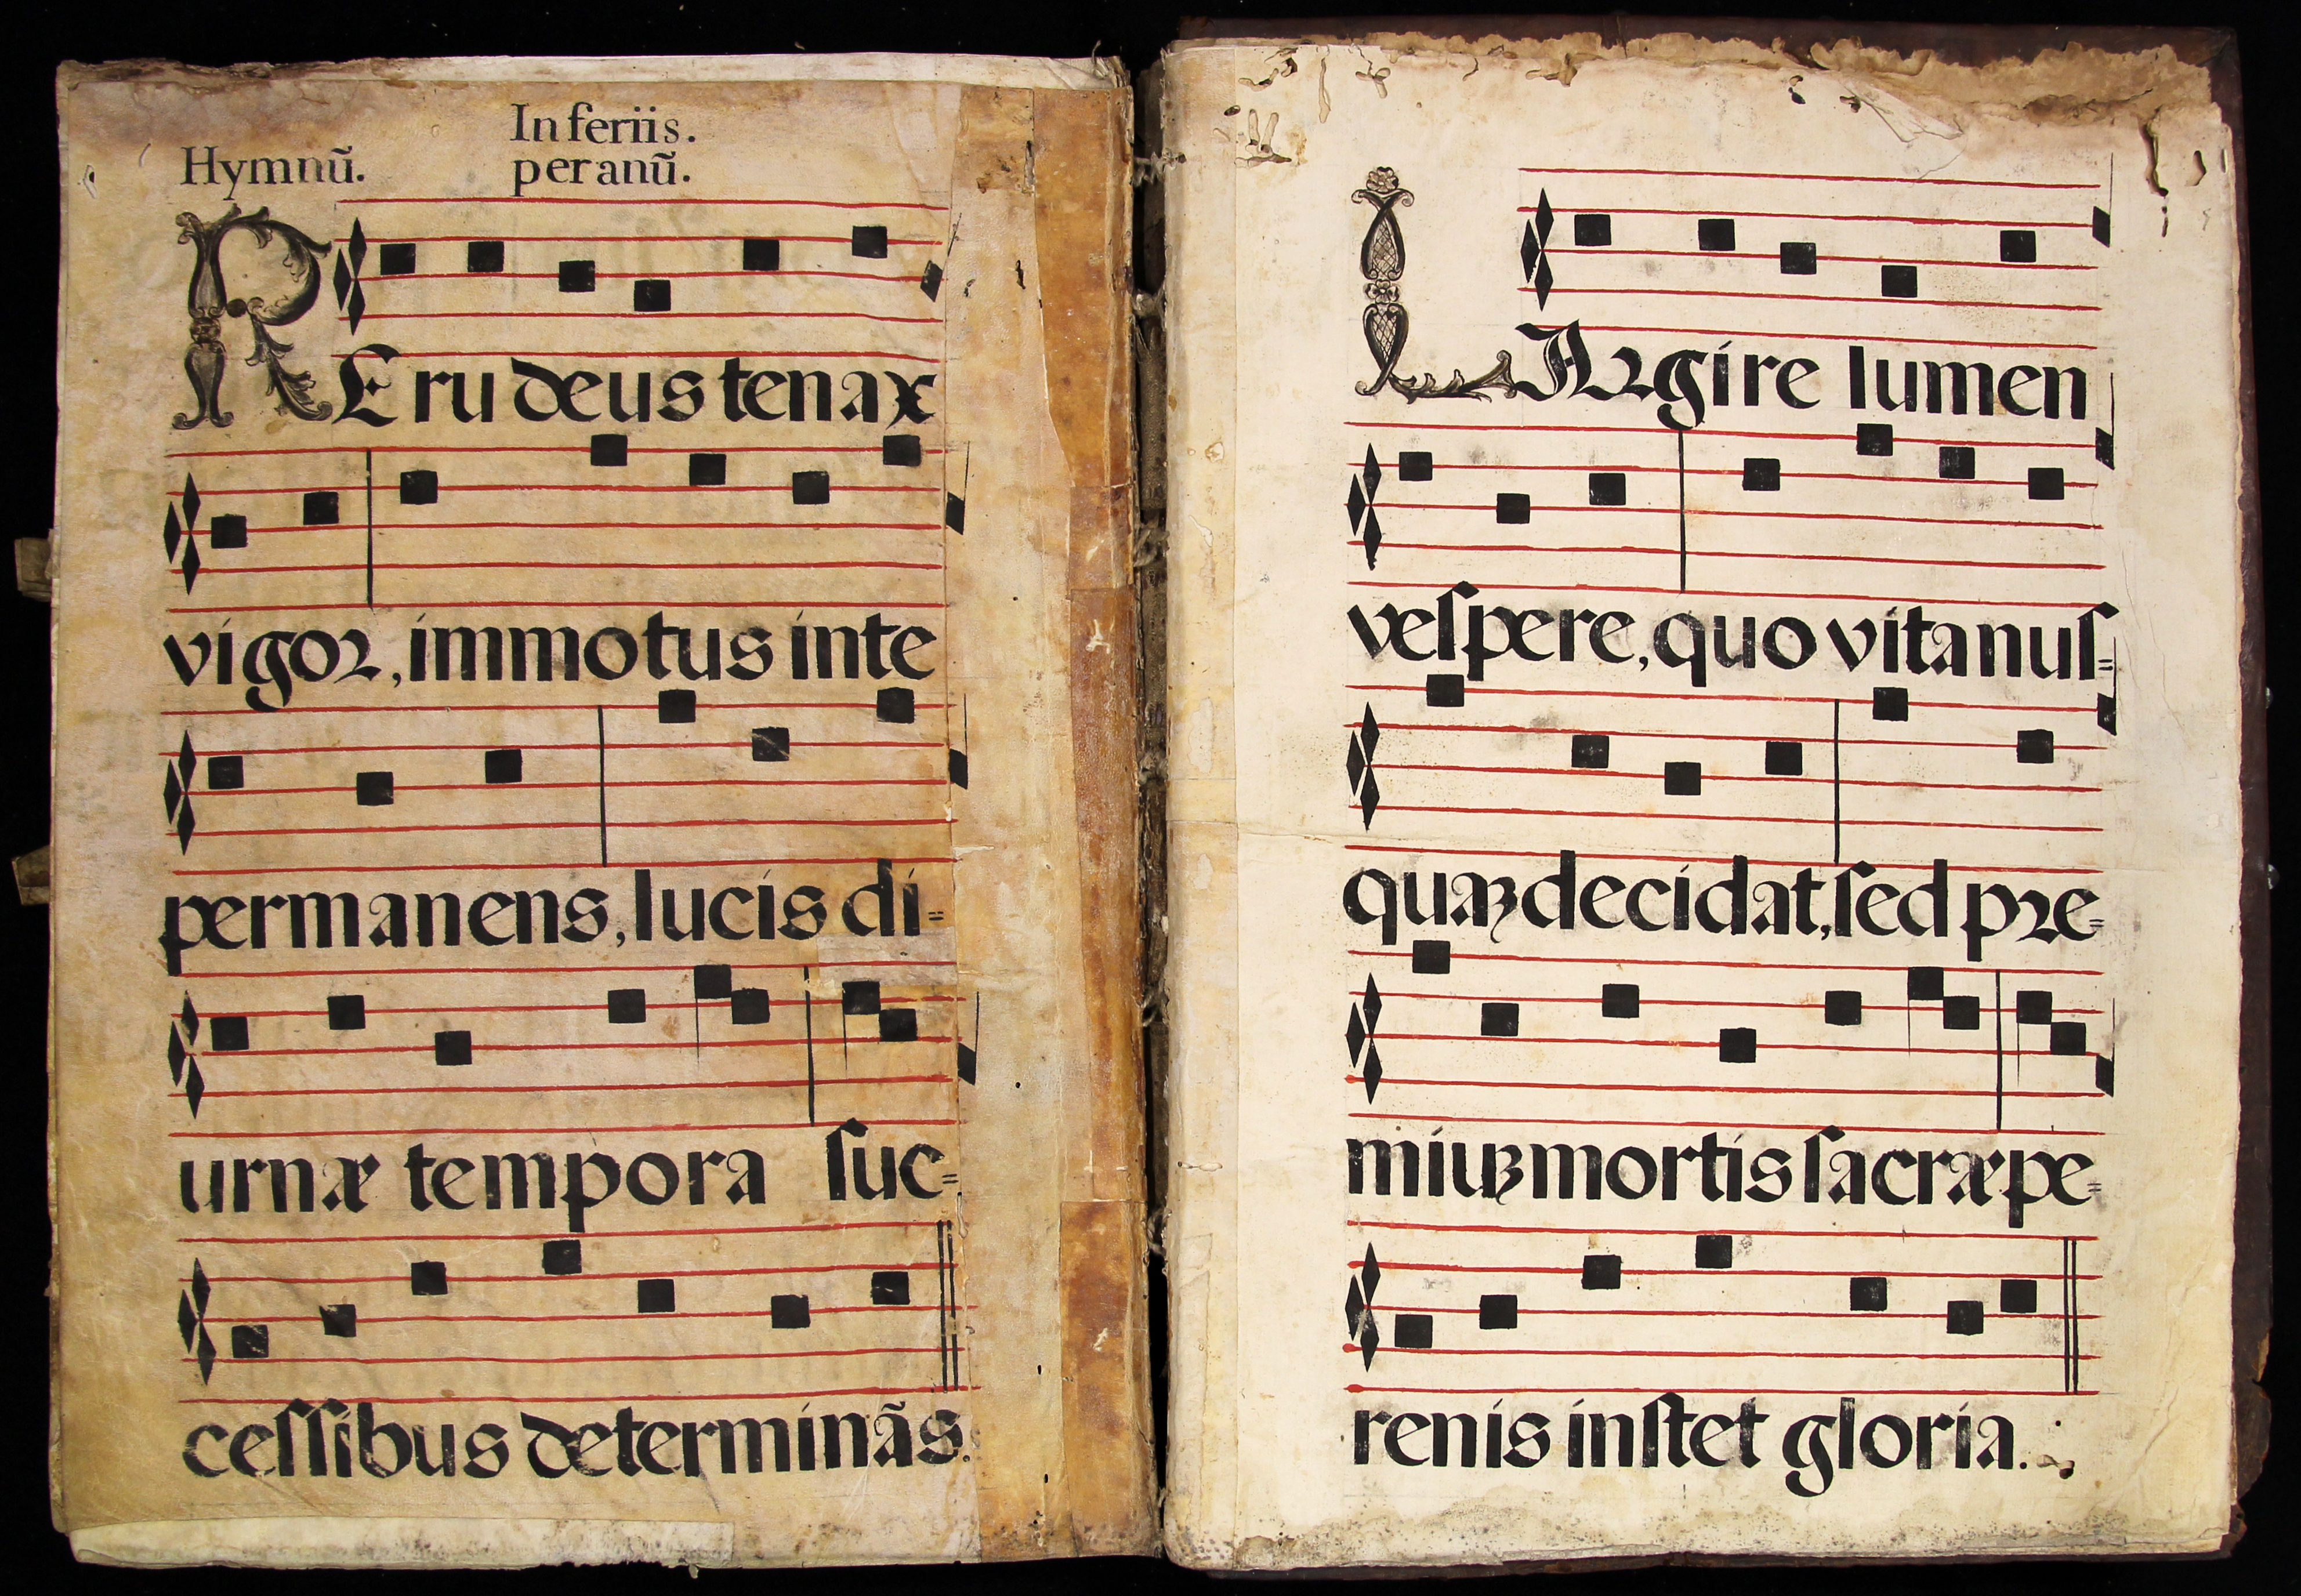 In feriis.
Hymnũ. per anũ.
REru deus tenax
vigor, immotus inte
permanens, lucis di=
urnæ tempora ſuc=
ceſſibus determinãs.
LArgire lumen
veſpere, quo vita nuſ=
quaꝫ decidat, ſed pre=
miuꝫ mortis ſacræ pe=
renis inſtet gloria.